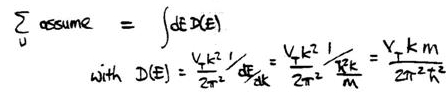 ∑_U assume = ∫dE D(E)
with D(E) = V_T k² / 2π² 1 / dE/dk = V_T k² / 2π² 1 / ħ²k/m = V_T k m / 2π² ħ²